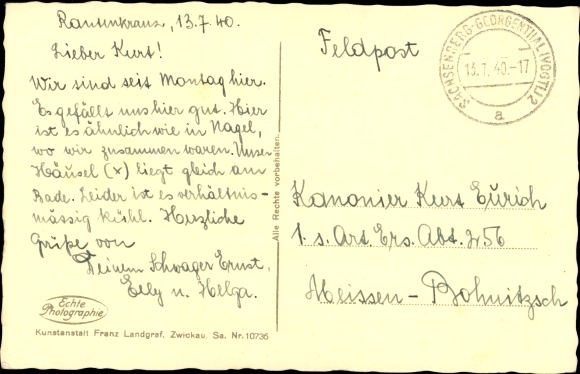 Rautenkranz, 13.7.40.
Lieber Kurt!
Wir sind seit Montag hier.
Es gefällt uns hier gut. Hier
ist es ähnlich wie in Nagel,
wo wir zusammen waren. Unser
Häusel (x) liegt gleich am
Bade. Leider ist es verhältnis-
mässig kühl. Herzliche
Grüße von
Deinem Schwager Ernst,
Elly u. Helga.
Echte
Photographie
Kunstanstalt Franz Landgraf, Zwickau. Sa. Nr. 10736
Alle Rechte vorbehalten.
Feldpost
SACHSENBERG-GEORGENTHAL (VOGTL) 2
13.7.40.-17
a
Kanonier Kurt
1. s. Art. Ers. Abt. 256
Meissen - Bohnitzsch